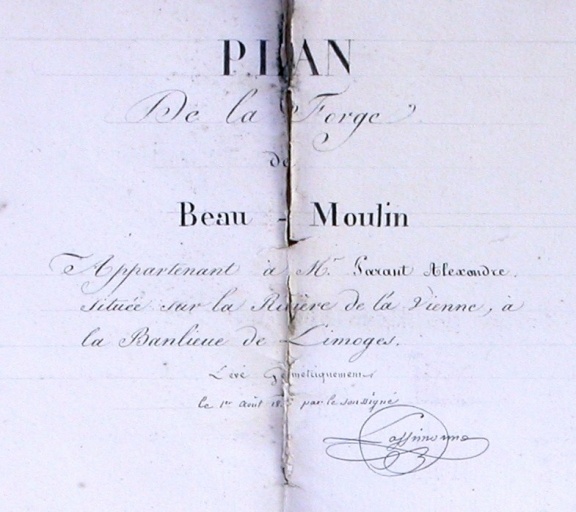 PLAN
De la Forge
de
Beau - Moulin
Appartenant à Mr Parant Alexandre.
située sur la Rivière de la Vienne, à
la Banlieue de Limoges.
Levé Géométriquement
le 1er Août 18 par le soussigné